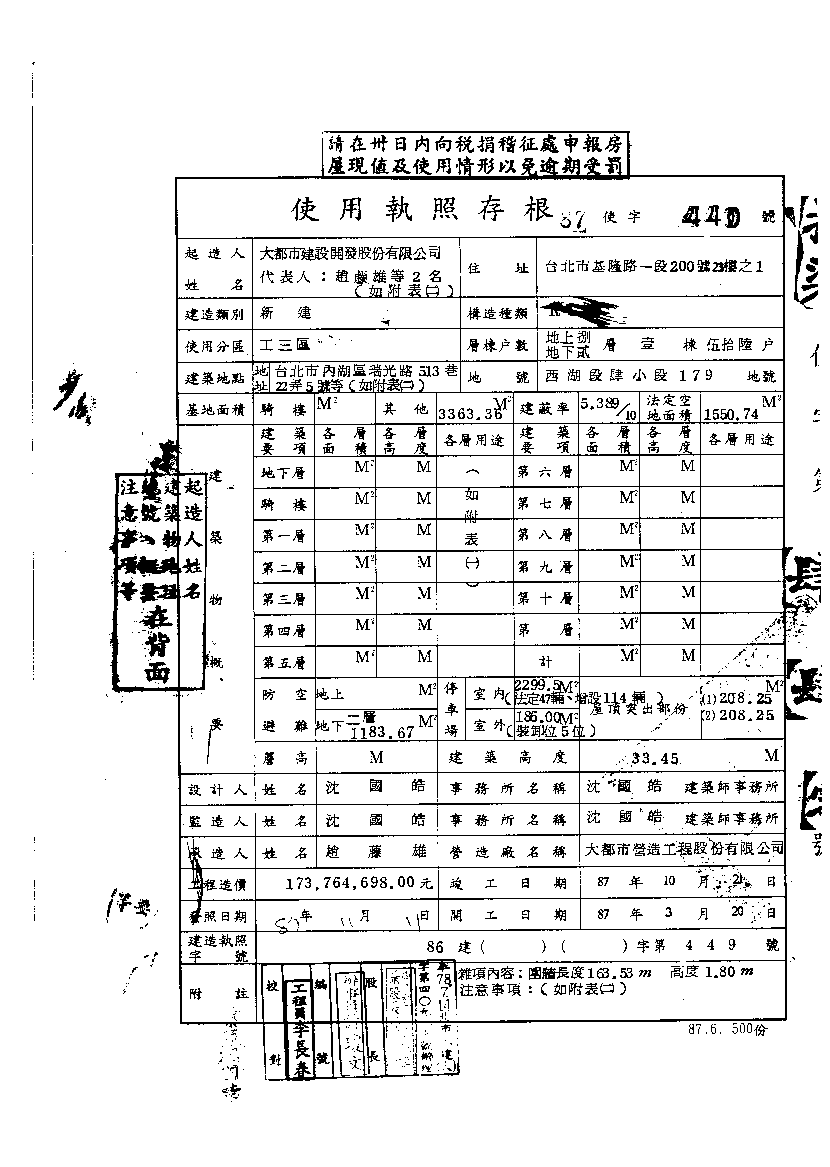 請在卅日內向稅捐稽征處申報房
屋現值及使用情形以免逾期受罰
使用執照存根 87 使字 440 號
起造人姓名 大都市建設開發股份有限公司
代表人：趙藤雄等2名
(如附表㈡)
住址 台北市基隆路一段200號21樓之1
建造類別 新建 構造種類
使用分區 工三區 層棟戶數 地上捌 地下貳 層 壹 棟 伍拾陸 戶
建築地點 地址 台北市內湖區瑞光路513巷
22弄5號等(如附表㈡)
地號 西湖段肆小段179 地號
基地面積 騎樓 M² 其他 3363.36 M² 建蔽率 5.389/10 法定空地面積 1550.74 M²
建築物概要
建築要項 各層面積 各層高度 各層用途 建築要項 各層面積 各層高度 各層用途
地下層 M² M (如附表㈠) 第六層 M² M
騎樓 M² M 第七層 M² M
第一層 M² M 第八層 M² M
第二層 M² M 第九層 M² M
第三層 M² M 第十層 M² M
第四層 M² M 第 層 M² M
第五層 M² M 計 M² M
防空避難 地上 M²
地下二層 1183.67 M²
停車場 室內 2299.5 M²
(法定47輛、增設114輛)
室外 185.00 M²
(裝卸位5位)
屋頂突出部份 (1)208.25 M²
(2)208.25
層高 M 建築高度 33.45 M
設計人 姓名 沈國皓 事務所名稱 沈國皓 建築師事務所
監造人 姓名 沈國皓 事務所名稱 沈國皓 建築師事務所
承造人 姓名 趙藤雄 營造廠名稱 大都市營造工程股份有限公司
工程造價 173,764,698.00元 竣工日期 87年10月21日
發照日期 87年11月11日 開工日期 87年3月20日
建造執照字號 86建( )( )字第449號
附註 雜項內容：圍牆長度163.53m 高度1.80m
注意事項：(如附表㈡)
校對 工程員李長春 編號 股長
87.6. 500份
起造人姓名
建築物地址
注意事項等
在背面